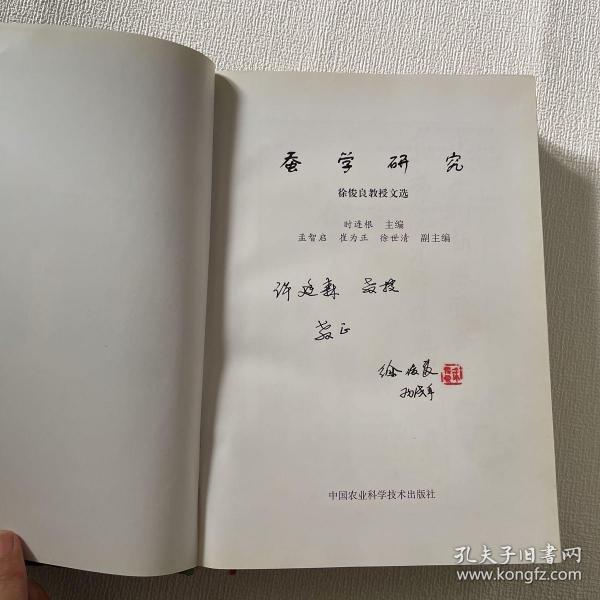 蚕学研究
徐俊良教授文选
时连根 主编
孟智启 崔为正 徐世清 副主编
许廷森 教授
教正
徐俊良
中国农业科学技术出版社
孔夫子旧书网
www.kongfz.com